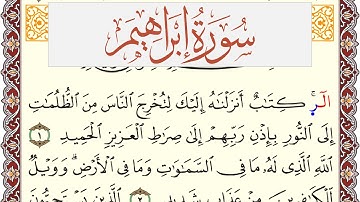 سُورَةُ إِبْرَاهِيم
الٓرۚ كِتَٰبٌ أَنزَلْنَٰهُ إِلَيْكَ لِتُخْرِجَ النَّاسَ مِنَ الظُّلُمَٰتِ
إِلَى النُّورِ بِإِذْنِ رَبِّهِمْ إِلَىٰ صِرَٰطِ الْعَزِيزِ الْحَمِيدِ ١
اللَّهِ الَّذِى لَهُۥ مَا فِى السَّمَٰوَٰتِ وَمَا فِى الْأَرْضِۗ وَوَيْلٌ
لِّلْكَٰفِرِينَ مِنْ عَذَابٍ شَدِيدٍ ٢ الَّذِينَ يَسْتَحِبُّونَ